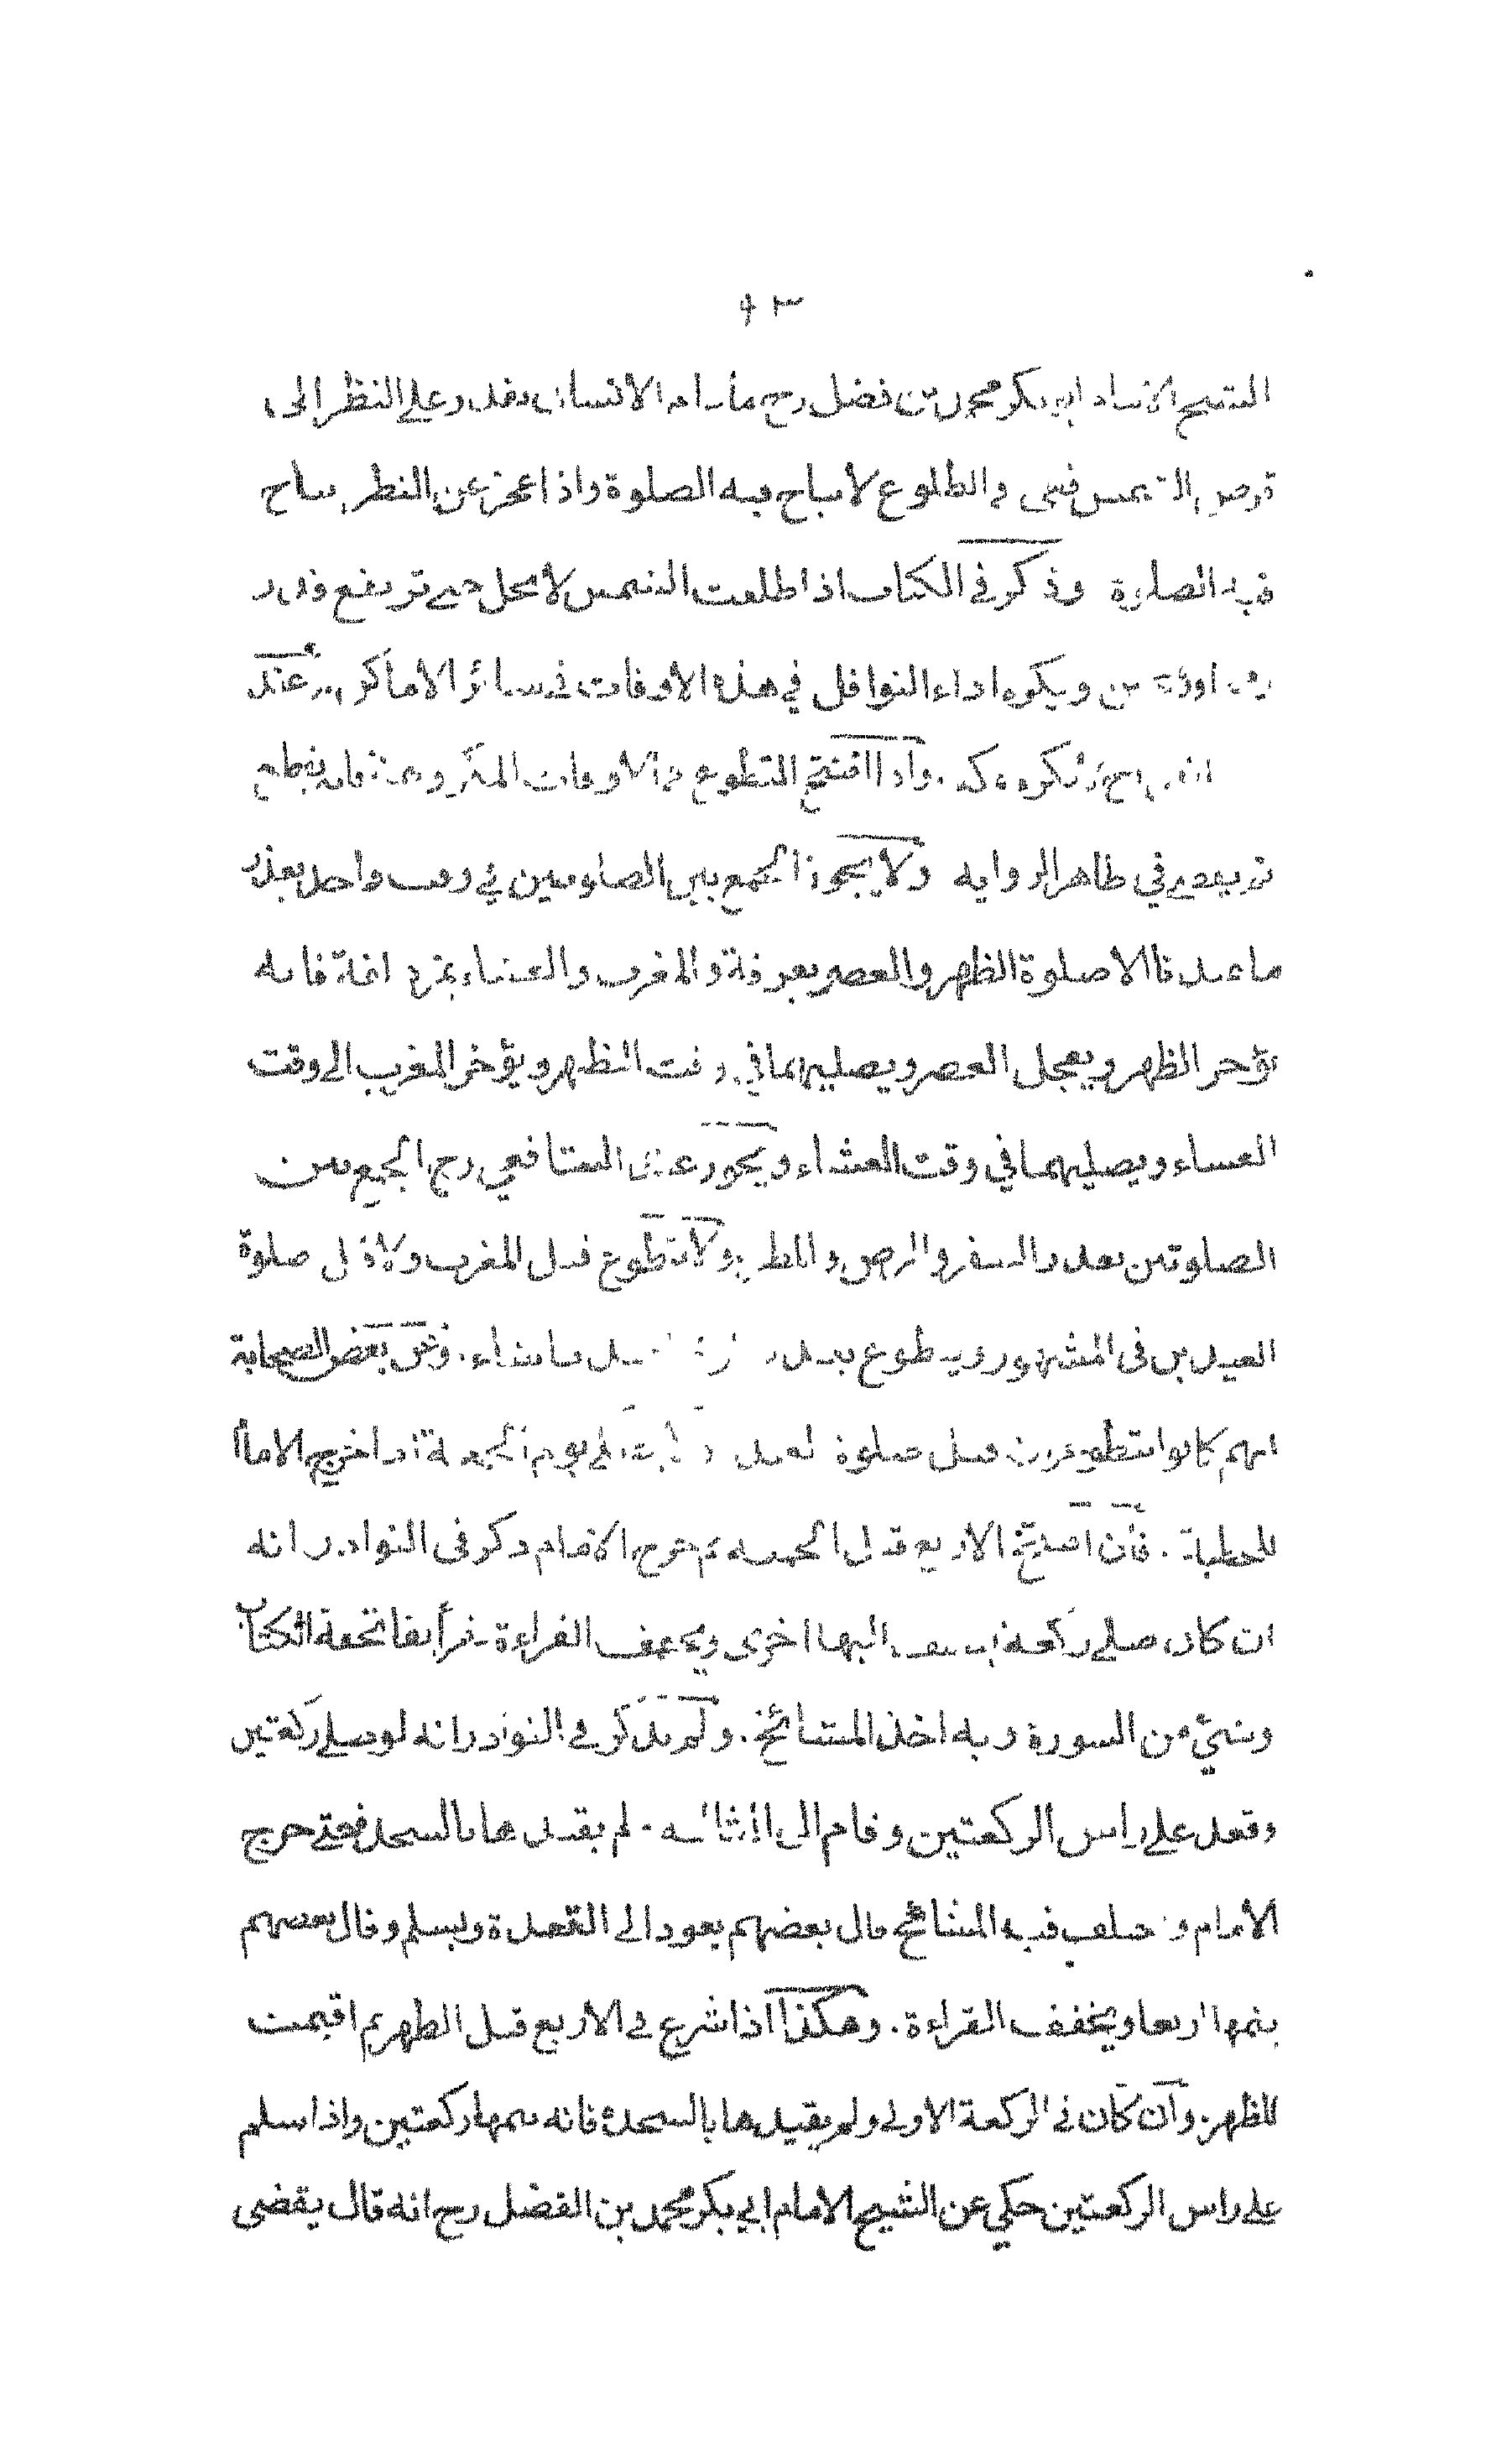 الشيخ الامام ابو بكر محمد بن فضل رح ما دام الانسان يقدر على النظر الى
قرص الشمس فهى فى الطلوع لا يباح فيه الصلوة واذا عجز عن النظر يباح
فيه الصلوة وذكر فى الكتاب اذا طلعت الشمس لا يحل حتى ترتفع قدر
رمح او رمحين ويكره اداء النوافل في هذه الاوقات فى سائر الاماكن وعند
رح لا يكره بمكة . واذا افتتح التطوع فى الاوقات المكروهة فانه يقطع
ثم يقضى في ظاهر الرواية ولا يجوز الجمع بين الصلوتين في وقت واحد بعذر
ما عندنا الا صلوة الظهر والعصر بعرفة والمغرب والعشاء بمزدلفة فانه
يؤخر الظهر ويعجل العصر ويصليهما في وقت الظهر ويؤخر المغرب الى وقت
العشاء ويصليهما في وقت العشاء ويجوز عند الشافعي رح الجمع بين
الصلوتين بعذر السفر والمرض والمطر ولا يتطوع قبل المغرب ولا قبل صلوة
العيدين فى المشهور ويتطوع بعد ما شاء . وعن بعض الصحابة
انهم كانوا يتطوعون قبل صلوة العيد يوم الجمعة اذا خرج الامام
للخطبة . فان افتتح الاربع قبل الجمعة ثم خرج الامام ذكر فى النوادر انه
ان كان صلى ركعة يضيف اليها اخرى ويخفف القراءة يقرأ بفاتحة الكتاب
وشئ من السورة وبه اخذ المشائخ . ولم يذكر فى النوادر انه لو صلى ركعتين
وقعد على راس الركعتين وقام الى الثالثة . لم يقيدها بالسجدة حتى خرج
الامام واختلف فيه المشائخ قال بعضهم يعود الى القعدة ويسلم وقال بعضهم
يتمها اربعا ويخفف القراءة . وهكذا اذا شرع فى الاربع قبل الظهر ثم اقيمت
للظهر . وان كان فى الركعة الاولى ولم يقيدها بالسجدة فانه يتمها ركعتين واذا سلم
على راس الركعتين حكي عن الشيخ الامام ابي بكر محمد بن الفضل رح انه قال يقضى